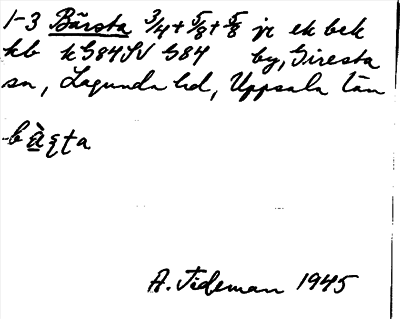 1-3 Bärsta 3/4 + 5/8 + 5/8 jr ek bek
kb kG84SV G84 by, Giresta
sn, Lagunda hd, Uppsala län
bà̱ʂṭa
A. Tideman 1945